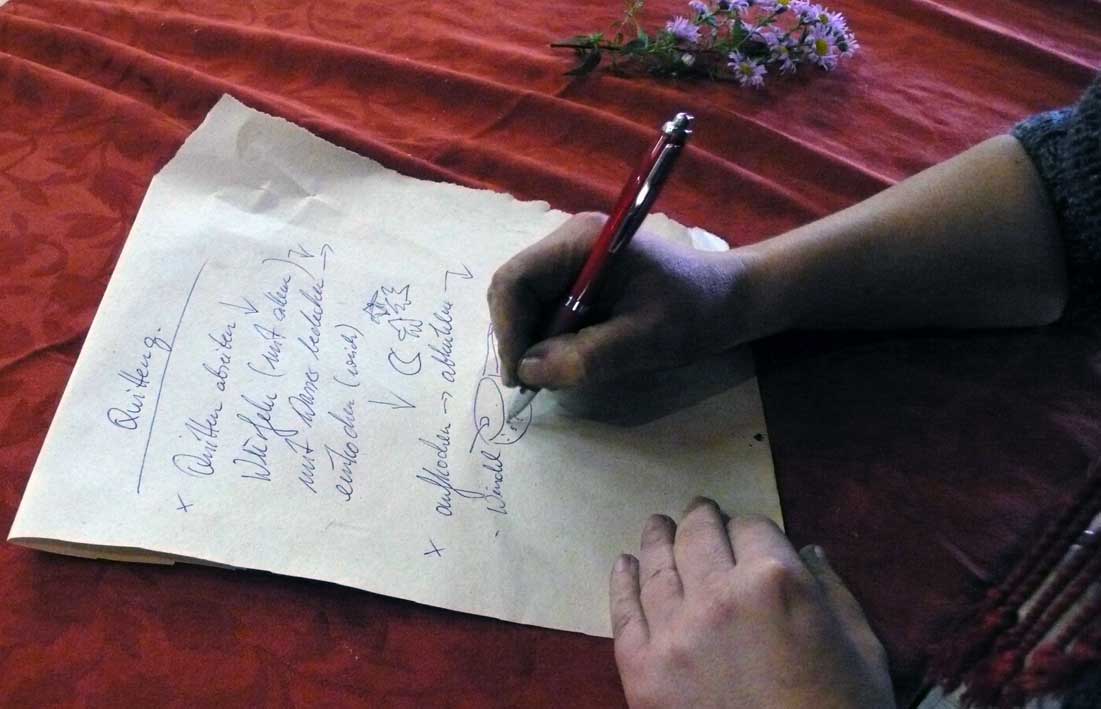 Quitten
x Quitten abreiben ↓
Würfeln (mit allem) ↓
mit Wasser bedecken →
einkochen (weich)
↓
x aufkochen → abkühlen ↓
- Windel